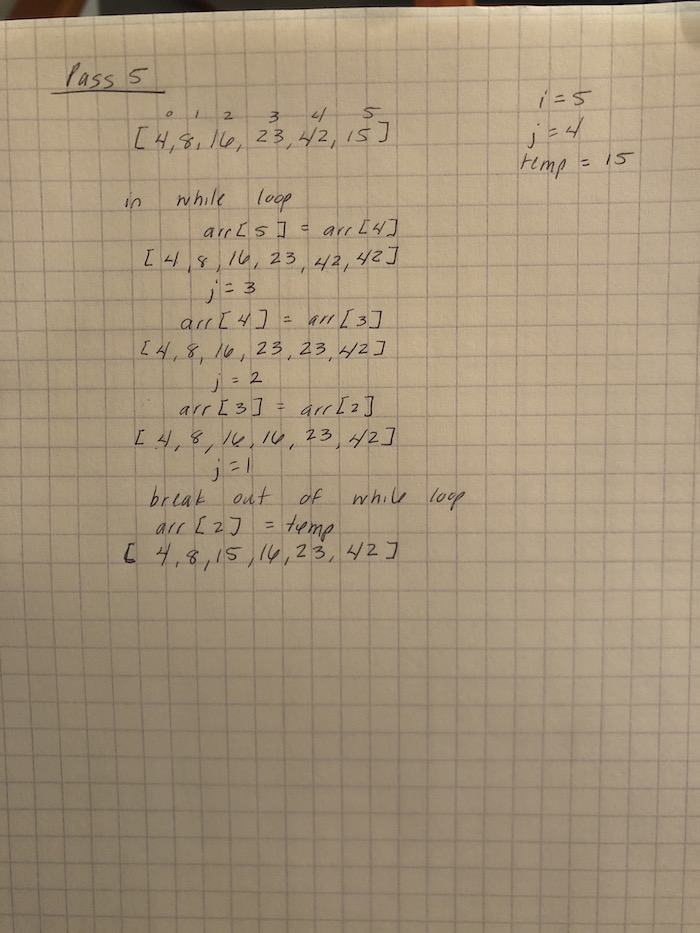 Pass 5
0 1 2 3 4 5
[4,8,16,23,42,15]
i=5
j=4
temp = 15
in while loop
arr[5] = arr[4]
[4,8,16,23,42,42]
j=3
arr[4] = arr[3]
[4,8,16,23,23,42]
j=2
arr[3] = arr[2]
[4,8,16,16,23,42]
j=1
break out of while loop
arr[2] = temp
[4,8,15,16,23,42]